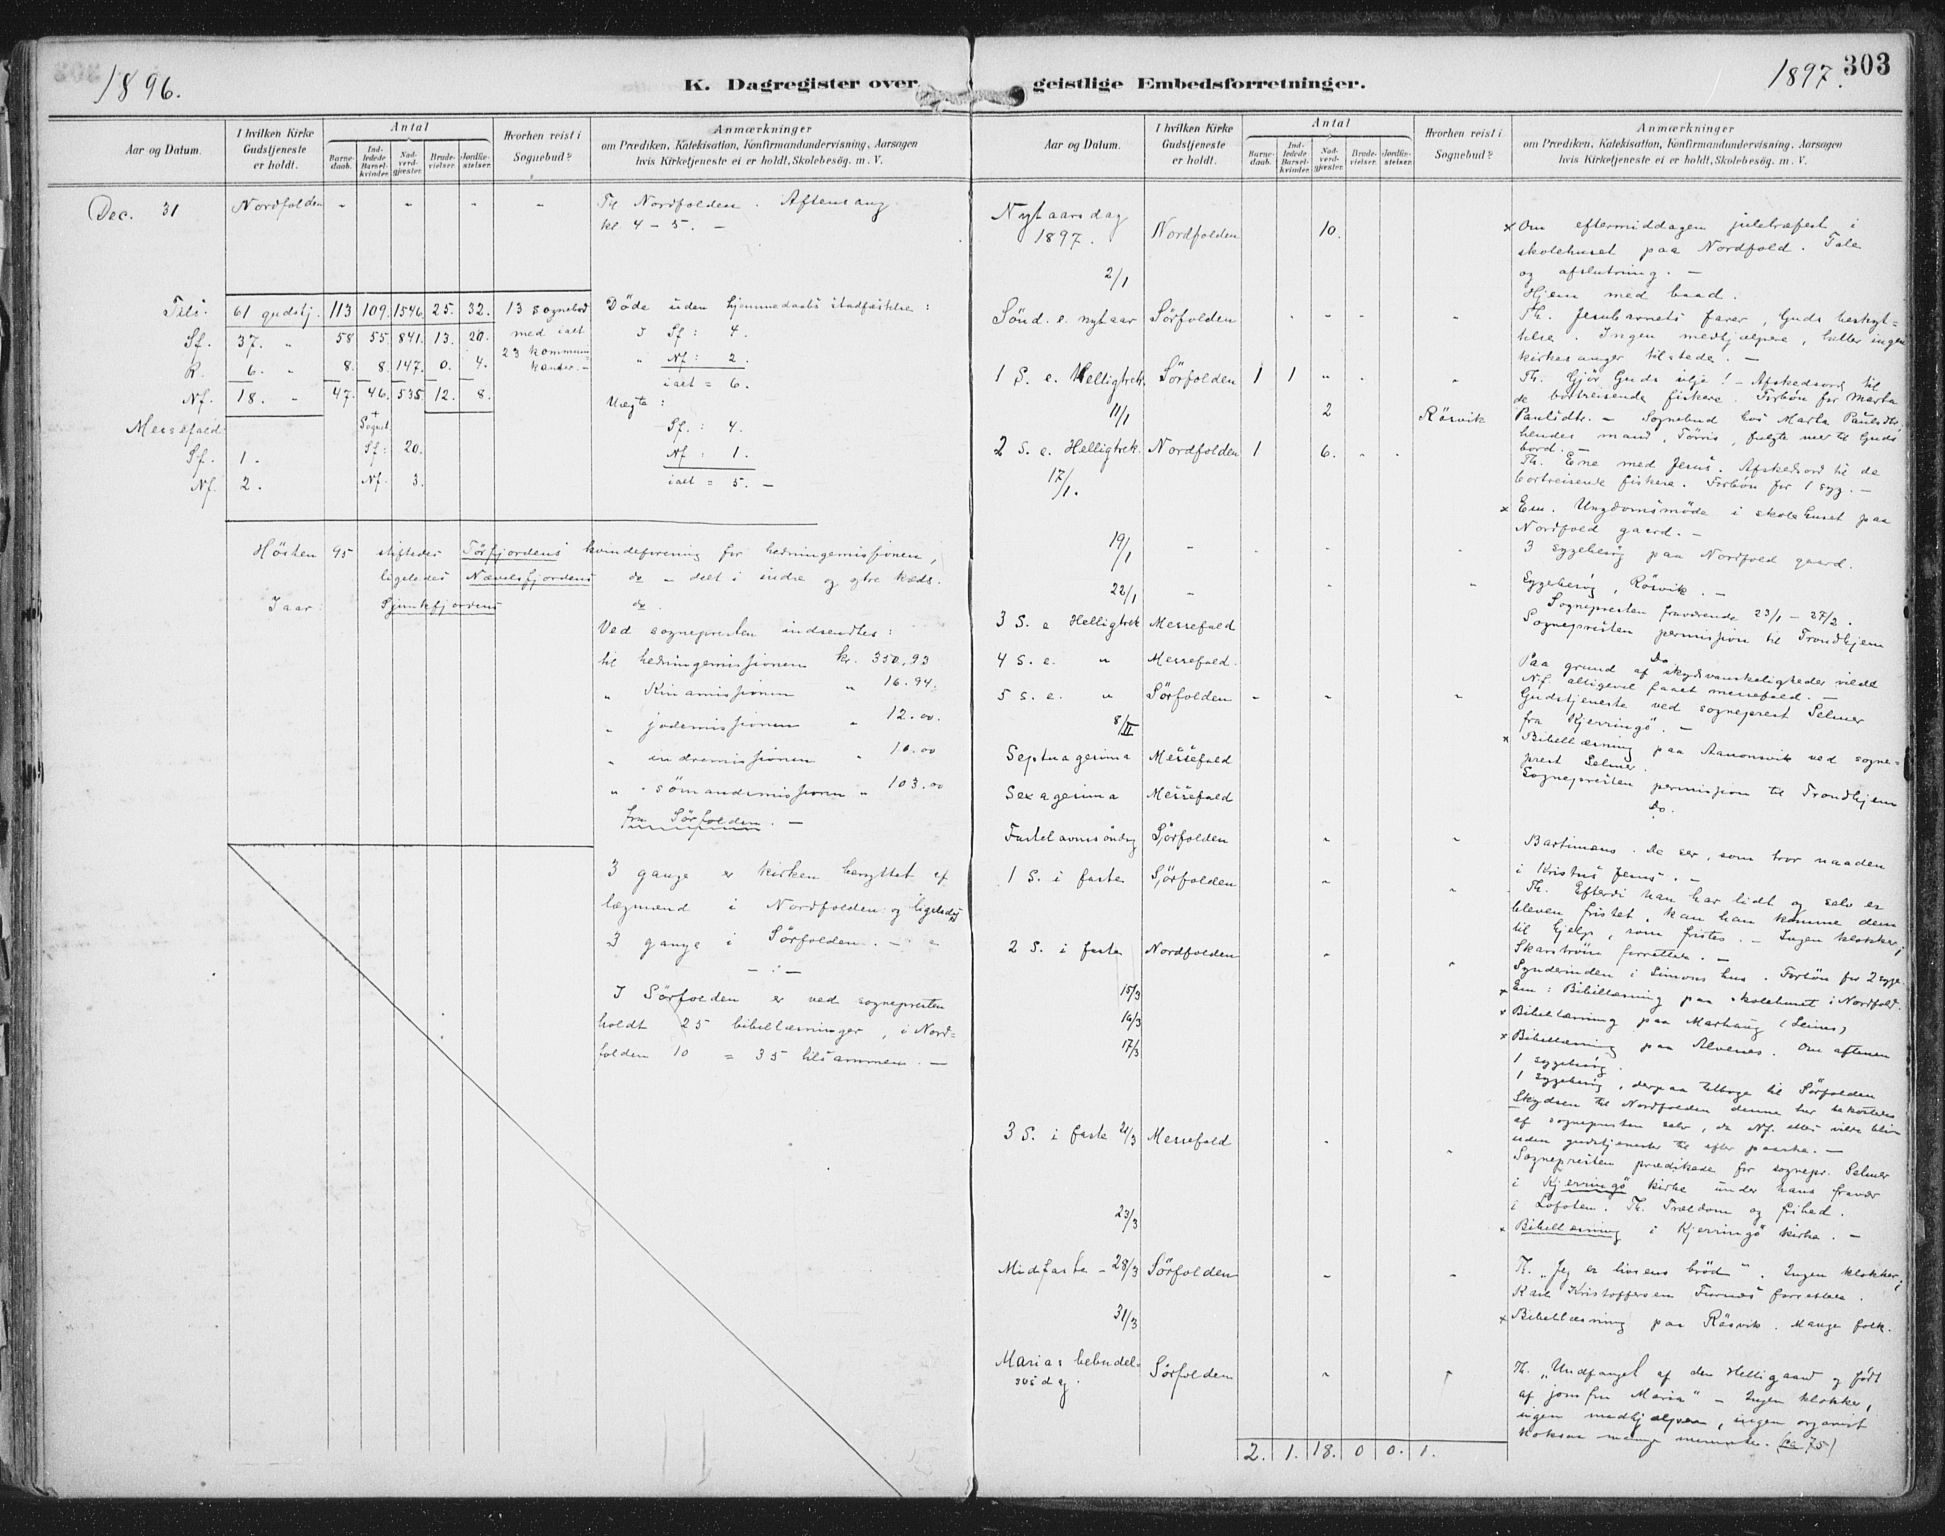 1896.
K. Dagregister over
Aar og Datum.
I hvilken Kirke Gudstjeneste er holdt.
Antal
Barnedaab.
Indledede Barselkvinder.
Nadverdgjæster.
Brudevielser.
Jordfæstelser.
Hvorhen reist i Sognebud?
Anmærkninger
om Prædiken, Katekisation, Konfirmandundervisning, Aarsagen
hvis Kirketjeneste ei er holdt, Skolebesøg m. V.
Dec. 31 Nordfolden - - - - Til Nordfolden. Aftensang
kl 4 - 5. -
Tils. 61 gudstj. 113 109. 1546. 25. 32. 13 sognebud Døde uden hjemmedaabs stadfæstelse:
Sf. 37. " 58 55 841. 13. 20. med ialt I Sf: 4.
K. 6. " 8. 8 147. 0. 4. 23 kommunikanter. - " Nf: 2.
ialt = 6.
Nf. 18. " 47. 46. 535. 12. 8. Uægte:
Messefald: Sf.: 4.
Sf. 1. Sf: 20. Nf: 1.
Nf. 2. Nf. 3. ialt = 5. -
Høsten 95 stiftedes Tørfjordens kvindeforening for hedningemissionen,
ligeledes Nævelsfjordens do - delt i indre og ytre kæds.
I aar: Gjunkfjordens do.
Ved sognepresten indsendtes:
til hedningemissionen kr. 350,93
" Kinamissionen " 16.94.
" jødemissionen " 12.00.
" indremissionen " 10.00
" sømandsmissionen " 103.00
fra Sørfolden. -
3 gange er kirken benyttet af
lægmænd i Nordfolden og ligeledes
3 gange i Sørfolden. -
- " -
I Sørfolden er ved sognepresten
holdt 25 bibellæsninger, i Nord-
folden 10 = 35 tilsammen. -
geistlige Embedsforretninger.
1897.
303
Aar og Datum.
I hvilken Kirke Gudstjeneste er holdt.
Antal
Barnedaab.
Indledede Barselkvinder.
Nadverdgjæster.
Brudevielser.
Jordfæstelser.
Hvorhen reist i Sognebud?
Anmærkninger
om Prædiken, Katekisation, Konfirmandundervisning, Aarsagen
hvis Kirketjeneste ei er holdt, Skolebesøg m. V.
Nytaarsdag
1897. Nordfolden 10. x Om eftermiddagen juletræfest i
skolehuset paa Nordfold. Tale
og afslutning. -
2/1 Hjem med baad.
Sønd. e. nytaar Sørfolden - - - - Th. Jesubarnets farer, Guds beskyt-
telse. Ingen medhjælpere, heller ingen
kirkesanger tilstede. -
1 S. e. Helligtrek. Sørfolden 1 1 " - " Th. Gjør Guds vilje! - Afskedsord til
de bortreisende fiskere. Forbøn for Marta
11/1 2 Røsvik Paulsdtr. - Sognebud hos Marta Paulsdtr.
hendes mand, Tørris, fulgte med til Guds
bord. -
2 S. e. Helligtrek. Nordfolden 1 6. - - Th. Ene med Jesus. Afskedsord til de
17/1. bortreisende fiskere. Forbøn for 1 syg. -
x Em. Ungdomsmøde i skolehuset paa
Nordfold gaard. -
19/1 " 3 sygebesøg paa Nordfold gaard.
22/1 " Sygebesøg, Røsvik. -
Sognepresten fraværende 23/1 - 27/2.
3 S. e Helligtrek Messefald Sognepresten permission til Trondhjem
4 S. e. " Messefald. Do
Paa grund af skydsvanskeligheder vilde
Nf. alligevel faaet messefald. -
5 S. e. " Sørfolden - " " Gudstjeneste ved sogneprest Selmer
fra Kjerringø. -
8/II x Bibellæsning paa Aanonsvik ved sogne-
prest Selmer.
Septuagesima Messefald Sognepresten permission til Trondhjem
Sexagesima Messefald Do.
Fastelavnssøndag Sørfolden " " Bartimæus. De ser, som tror naaden
i Kristus Jesus. -
1 S. i faste Sørfolden " " Th. Efterdi han har lidt og selv er
bleven fristet, kan han komme dem
til hjelp, som fristes. - Ingen klokker;
forrettede. -
2 S. i faste Nordfolden " " Synderinden i Simons hus. Forbøn for 2 syge.
x Em: Bibellæsning paa skolehuset i Nordfold.
15/3 x Bibellæsning paa Marhaug (Leines)
16/3 x Bibellæsning paa Alvenes. Om aftenen
1 sygebesøg.
17/3 1 sygebesøg, derpaa tilbage til Sørfolden
Skydsen til Nordfolden denne tur bekostedes
af sognepresten selv, da Nf. ellers vilde bliv
uden gudstjeneste til efter paaske. -
3 S. i faste 21/3 Messefald " " Sognepresten prædikede for sognepr. Selmer
i Kjerringø kirke under hans fravær
i Lofoten. Th. Trældom og frihed.
23/3 x Bibellæsning i Kjerringø kirke. -
Midfaste - 28/3 Sørfolden " " Th. "Jeg er livsens brød". Ingen klokker;
Karl Kristoffersen Furnes forrettede.
31/3 x Bibellæsning paa Røsvik. Mange folk.
Marias bebudel-
sesdag. Sørfolden " " Th. "Undfanget af den Helligaand og født
af jomfru Maria" - Ingen klokker,
ingen medhjælpere, ingen organist
mange mennesker. (ca 75)
2. 1. 18. 0 0. 1.